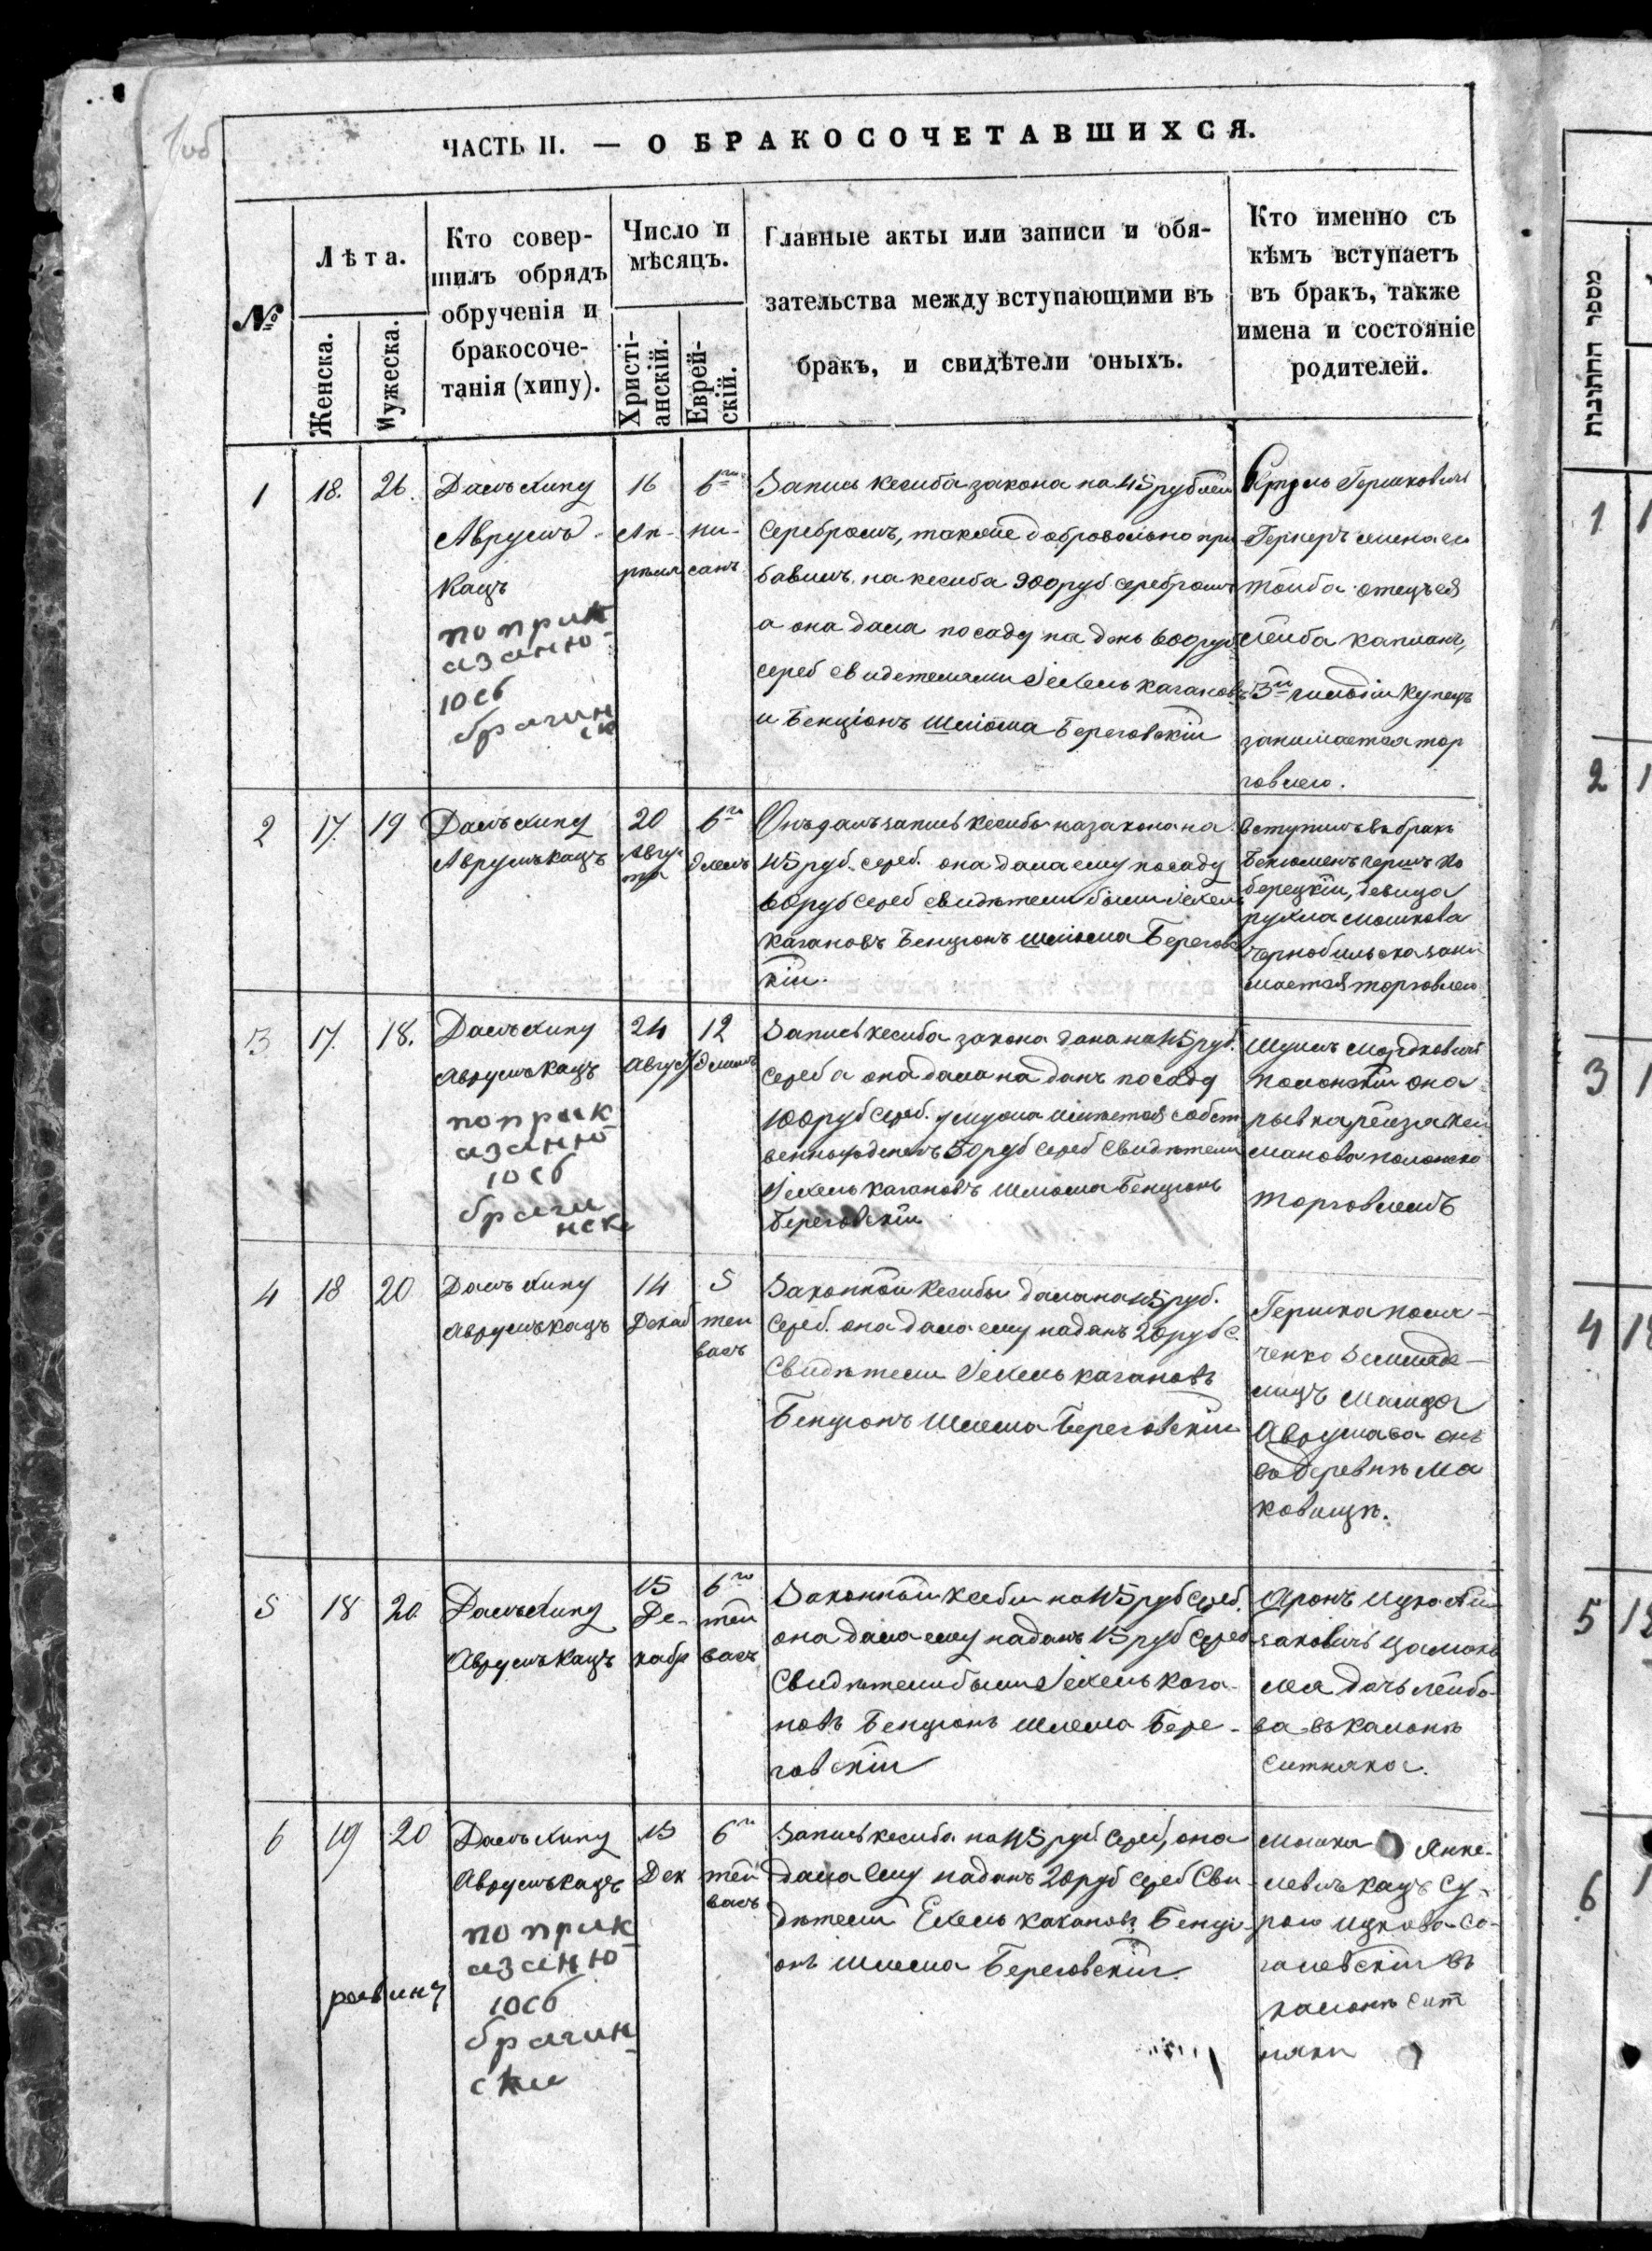 ЧАСТЬ II. — О БРАКОСОЧЕТАВШИХСЯ.
№
Лѣта.
Женска.
Мужеска.
Кто совер-
шилъ обрядъ
обрученія и
бракосоче-
танія (хипу).
Число и
мѣсяцъ.
Христі-
анскій.
Еврей-
скій.
Главные акты или записи и обя-
зательства между вступающими въ
бракъ, и свидѣтели оныхъ.
Кто именно съ
кѣмъ вступаетъ
въ бракъ, также
имена и состояніе
родителей.
מספר החתונות
1
18.
26.
Далъ хипу
Аврумъ
Кацъ
по прик
азаню
юсб
брагин
ск
16
Ап-
рыля
6го
ни-
санъ
Запись кесиба закона на 45 рублей
серебромъ, такоже добровольно при
бавилъ на кесиба 900 руб серебромъ
а она дала посаду на день 600 руб
сереб свидетелями Іехель кагановъ
и Бенціонъ Шліома Береговскій
Гершковичъ
жена его
тойба отецъ ея
лейба капланъ,
3й гильдіи купецъ
занимается тор
говлею.
2
17.
19
Далъ хипу
Аврумъ кацъ
20
Авгу-
ста
6го
элемъ
Онъ далъ запись кесибы на закона на
45 руб. сереб. она дала ему посаду
60 руб сереб свидѣтели были Іехель
кагановъ Бенціонъ шліома Берегов
кій.
вступилъ въ бракъ
девица
рухля мошкова
чернобильска зани
мается торговлею
3
17.
18.
Далъ хипу
Аврумъ кацъ
по прик
азаню
юсб
браги
нске
24
Август
12
элимъ
Запись кесиба закона дана на 45 руб.
сереб а она дала на данъ посаду
100 руб сереб. у мужа имѣется собст
веннихъ денегъ 50 руб сереб свидѣтели
Іехель кагановъ шлиома Бенціонъ
Береговскій
Шулимъ мордковичъ
полонскій она
ривка рейзя хаи
манова полонско
торговлемъ
4
18
20
Далъ хипу
Аврумъ кацъ
14
Декаб
5
теи
васъ
Законной кесибы дала на 45 руб.
сереб. она дала ему на данъ 20 руб с.
Свидѣтели Іехель кагановъ
Бенціонъ Шлема Береговскій
Гершка поля-
ченко земледе-
лицъ
Аврумова онъ
въ деревнѣ ма
ковищѣ.
5
18
20.
Далъ хипу
Аврумъ кацъ
15
Де-
кабр
6го
теи
васъ
Законной кесбы на 45 руб сереб.
она дала ему на данъ 15 руб сереб
Свидѣтели были Іехель кага-
новъ Бенціонъ шлема Бере-
говскій
Аронъ Ицко Аи
заковичъ
дочь лейбо-
ва въ калонѣ
ситняка.
6
19
20
Далъ хипу
Аврумъ кацъ
по прик
азаню
юсб
брагин-
ски
раввинъ
15
Дек
6го
теи
васъ
Запись кесиба на 45 руб сереб, она
дала ему на данъ 20 руб сереб Сви-
дѣтели Ехель каханов Бенци-
онъ шлема Береговскій.
Мошка Янке-
левичъ кацъ Су-
рою Ицкова Со-
галевскій въ
калонѣ сит
няки
1
2
3
4
5
6